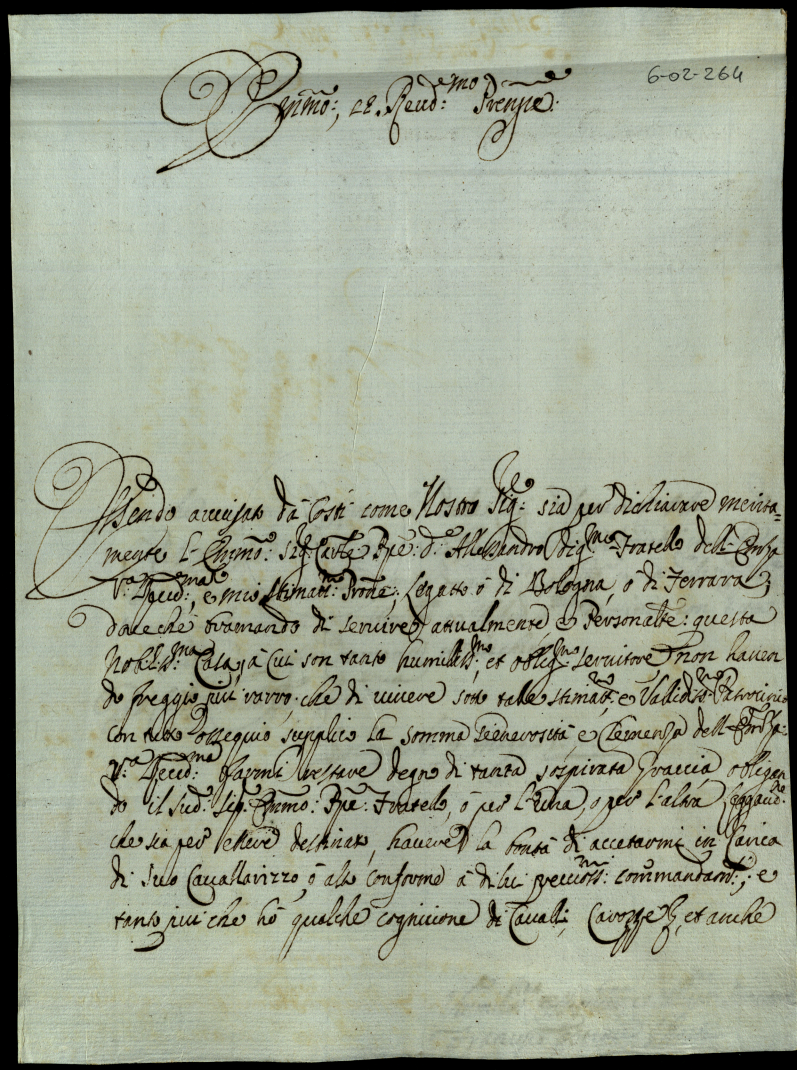 6-02-264
Emmo:, et Reud:mo Prenpe:
Essendo auuisato dà Costi come Nostro Sigre: sia per dichiarare merita=
mente l'Emmo: Sigr Carle Ppe: D: Alessandro digmo: Fratello dell'Emza
Va: Reuma:, e mio stimatmo: Prone:, Legatto ò di Bologna, ò di Ferrara;
doue che bramando di seruire attualmente e Personalte: questa
Nobilma: Casa, à Cui son tanto humillmo:, et obligmo: seruitore non hauen
do preggio più rarro, che di uiuere sotto talle stimatmo:, e Validmo: Patrocinio
con tuto ossequio supplico la somma Generosità e Clemenza dell'Emza:
Va: Reuma: farmi restare degno di tanta sospirata Graccia, obligan
do il sud: Sigr: Emmo: Ppe: Fratello, ò per l'Una, o per l'altra Leggaune:
che sia per essere destinato, hauere la bontà di accetarmi in Carica
di suo Cauallarizzo, ò alt conforme à di lui preccissmi: commandamti:; e
tanto più che hò qualche cognicione di Caualli, Carozze, et anche